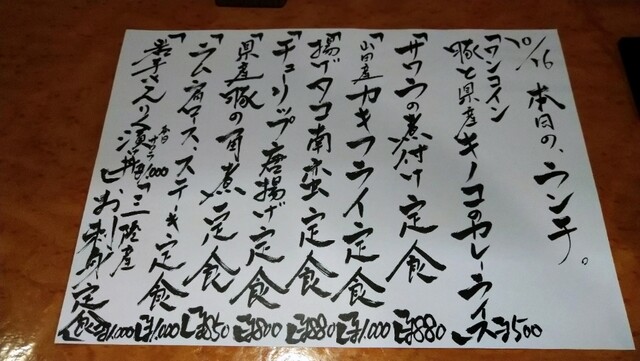 10/16 本日の、ランチ。
「ワンコイン
豚と県産キノコのカレーライス」¥500
「サワラの煮付け定食」¥880
「山田産カキフライ定食」¥1,000
「揚げタコ南蛮定食」¥880
「チューリップ唐揚げ定食」¥800
「県産豚の角煮定食」¥850
「ラム肩ロースステーキ定食」¥1,000
「岩手さんりく漁丼」
¥1,000
「三陸産
お刺身定食」¥1,000